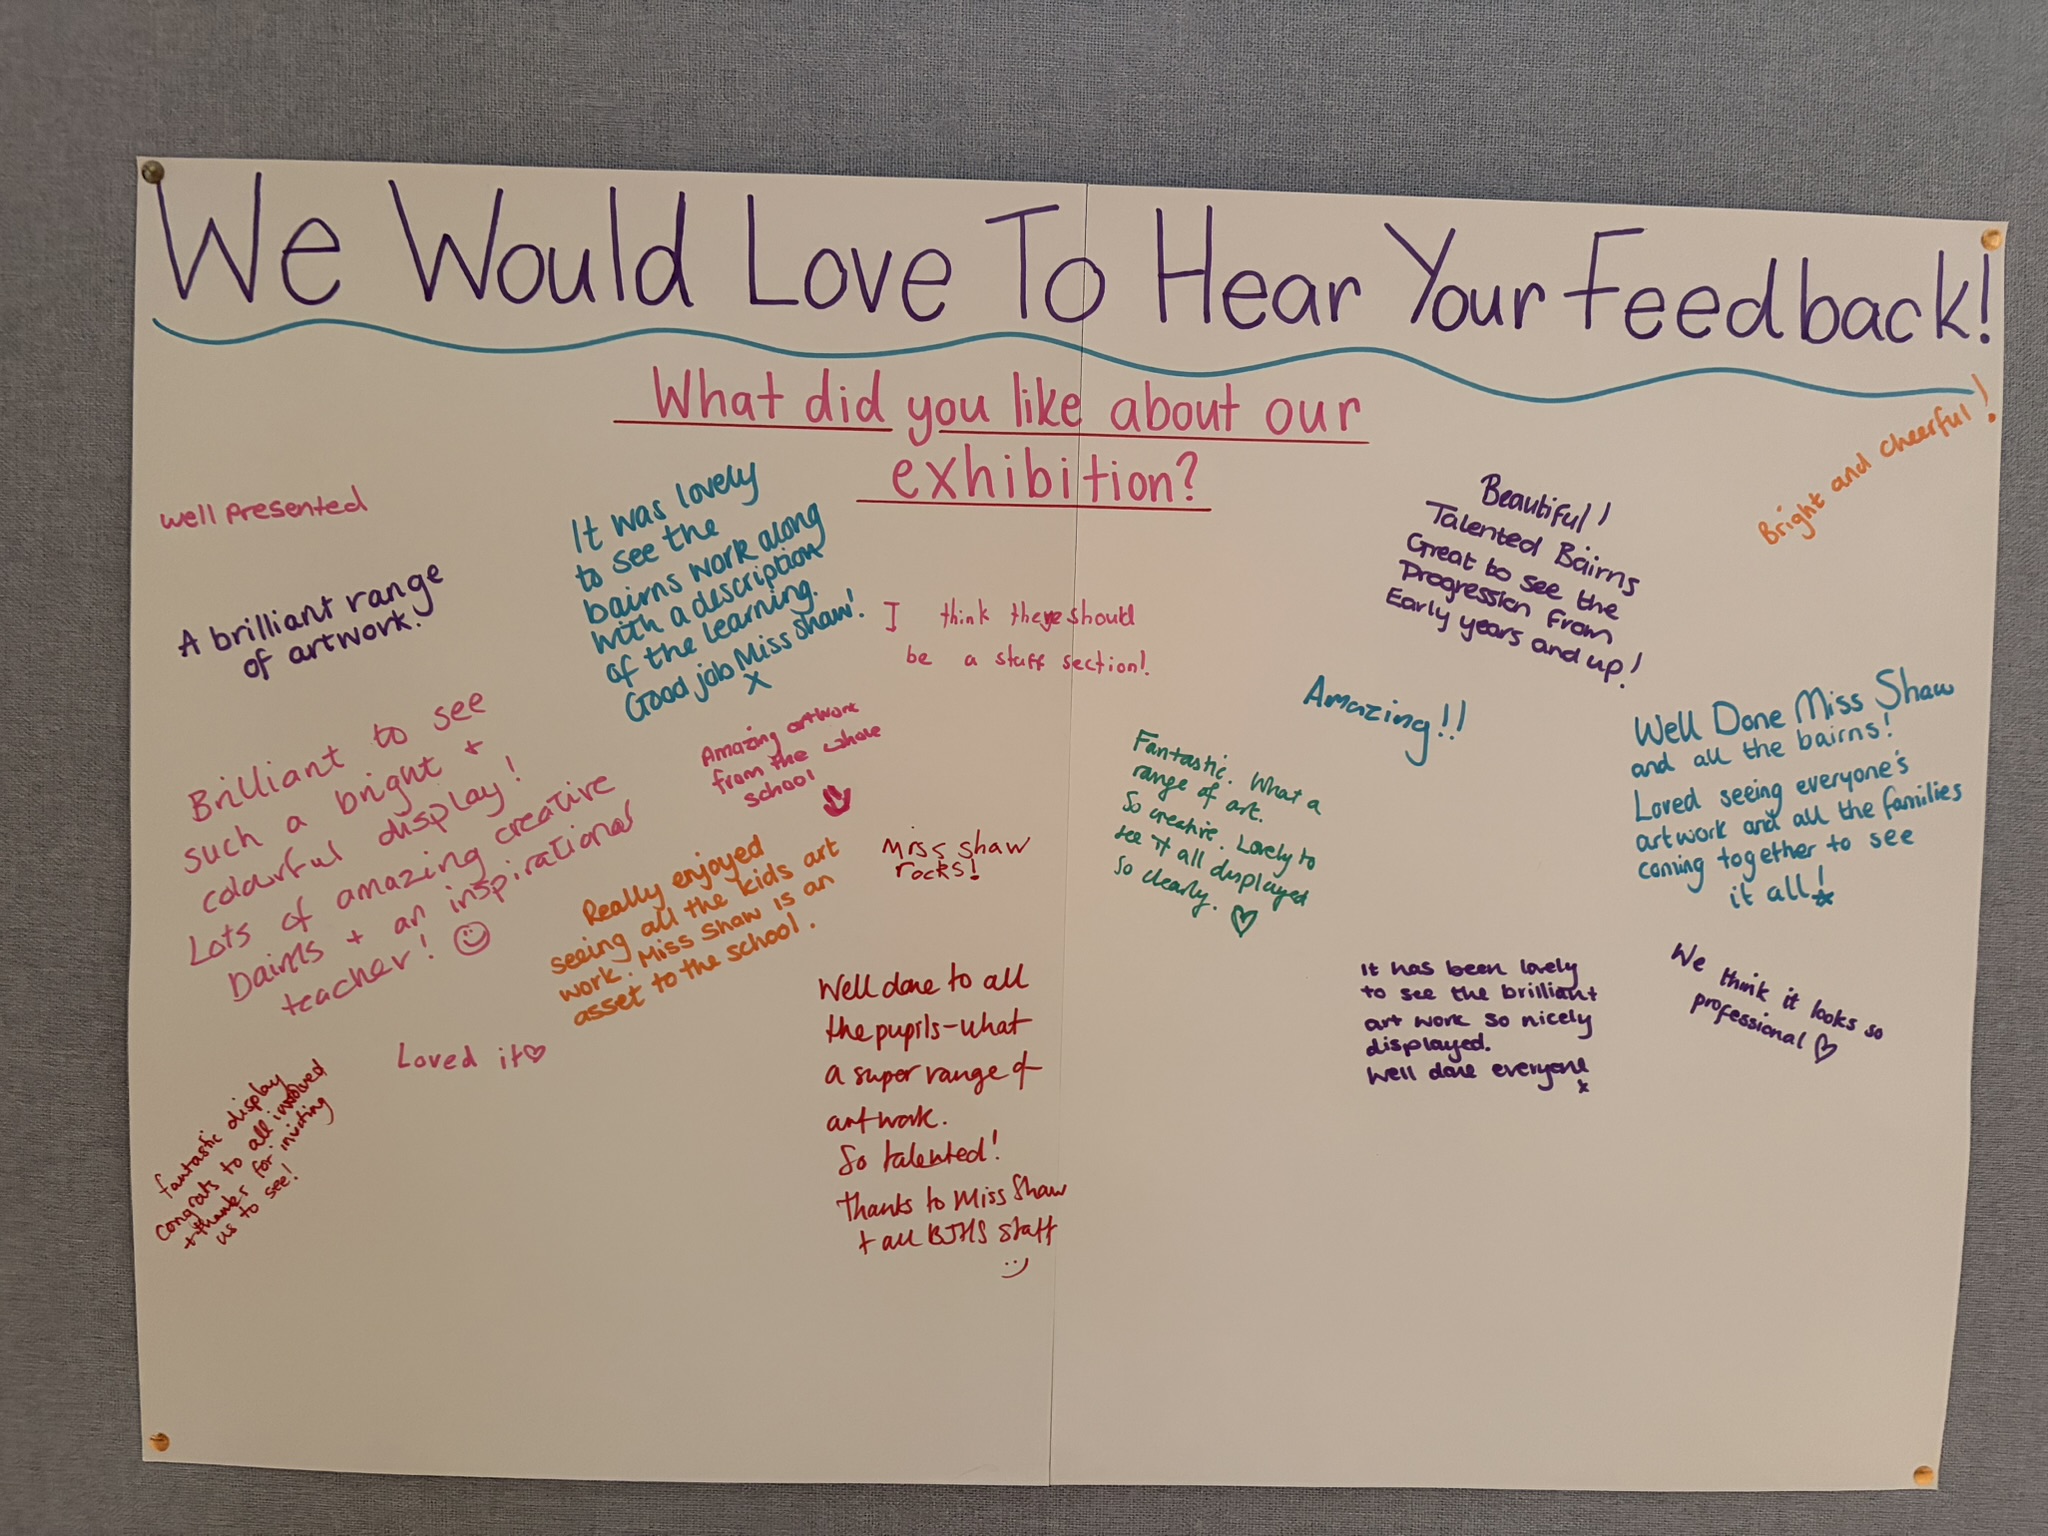 We Would Love To Hear Your Feedback!
What did you like about our
exhibition?
Well Presented
A brilliant range
of artwork.
It was lovely
to see the
bairns work along
with a description
of the learning.
Good job Miss Shaw!
x
I think there should
be a staff section!
Beautiful!
Talented Bairns
Great to see the
Progression from
Early years and up!
Bright and cheerful!
Brilliant to see
such a bright +
colourful display!
Lots of amazing creative
bairns + an inspirational
teacher!
Amazing artwork
from the whole
school
Amazing!!
Fantastic. What a
range of art.
So creative. Lovely to
see it all displayed
so clearly.
Well Done Miss Shaw
and all the bairns!
Loved seeing everyone's
artwork and all the families
coming together to see
it all!
Really enjoyed
seeing all the kids art
work. Miss Shaw is an
asset to the school.
Miss Shaw
rocks!
Well done to all
the pupils - what
a super range of
artwork.
So talented!
Thanks to Miss Shaw
+ all BJHS staff
:)
It has been lovely
to see the brilliant
art work so nicely
displayed.
Well done everyone
x
We think it looks so
professional
Loved it
fantastic display
congrats to all involved
+ thanks for inviting
us to see!